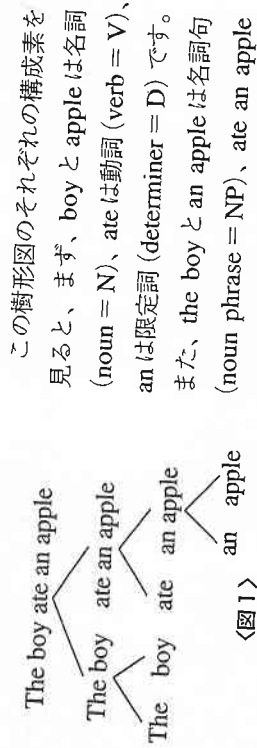 The boy ate an apple
The boy ate an apple
The boy ate an apple
an apple
〈図1〉
この樹形図のそれぞれの構成素を
見ると、まず、boy と apple は名詞
(noun = N)、ate は動詞 (verb = V)、
an は限定詞 (determiner = D) です。
また、the boy と an apple は名詞句
(noun phrase = NP)、ate an apple